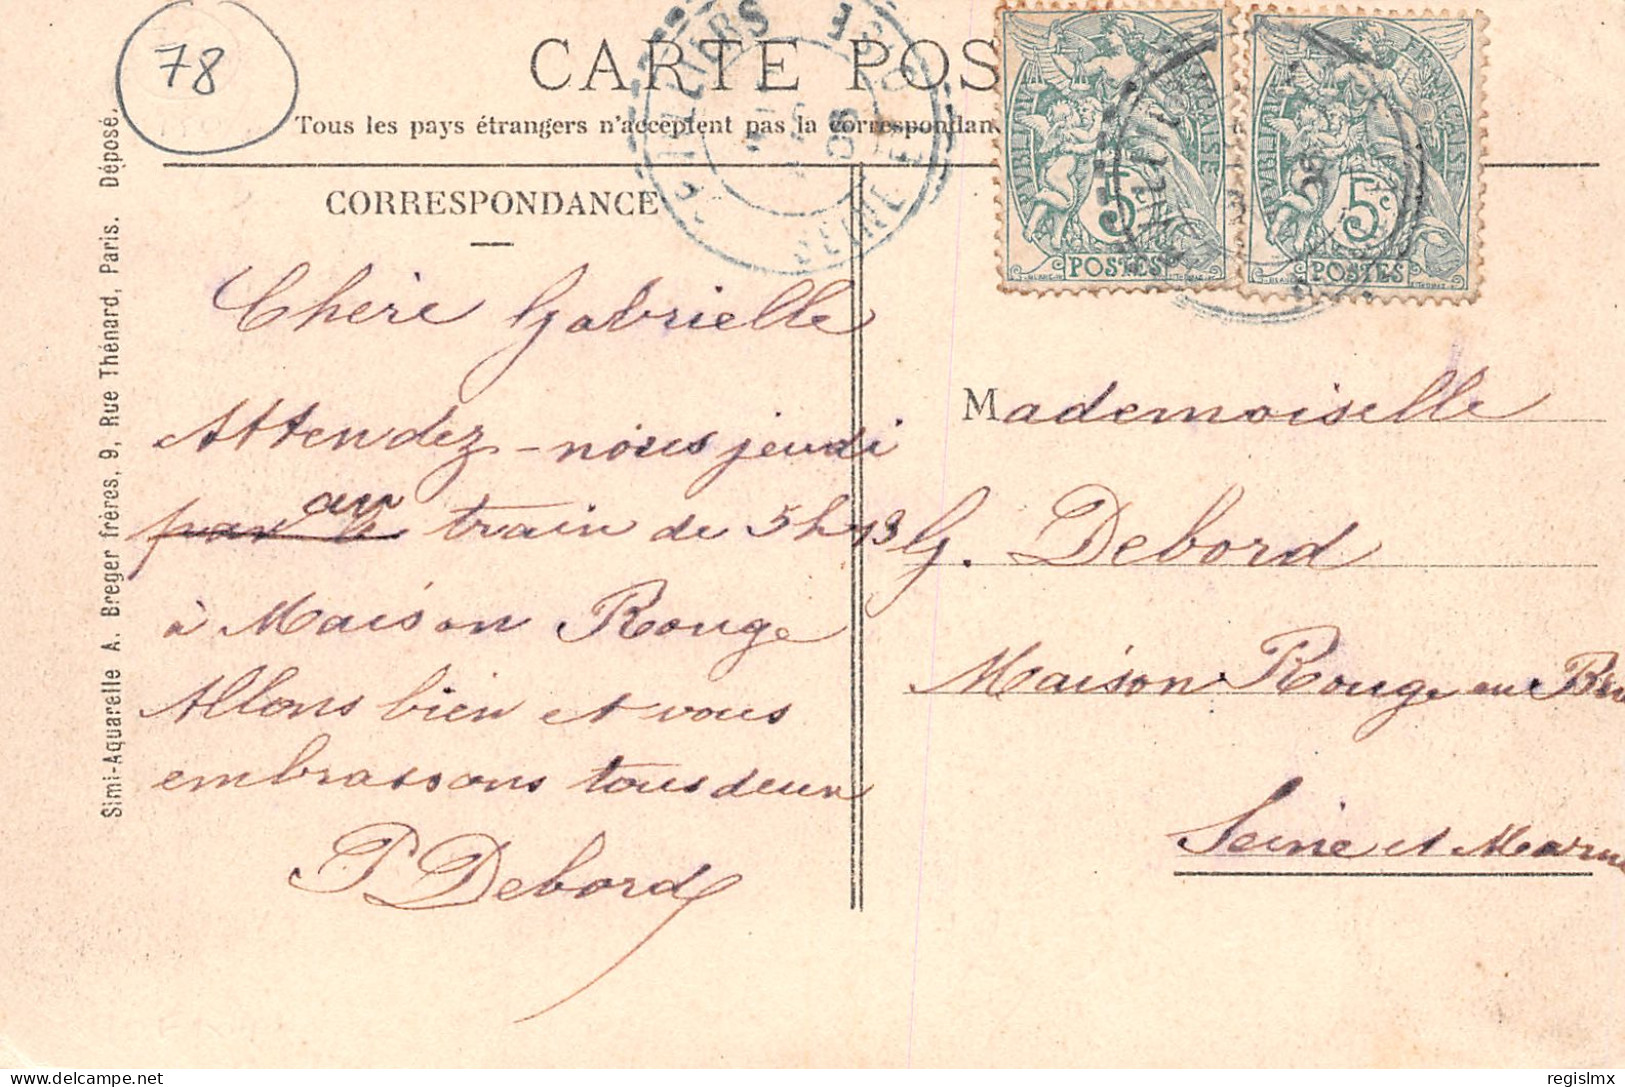 78
CARTE POS
Tous les pays étrangers n'acceptent pas la correspondan
CORRESPONDANCE
RÉPUBLIQUE FRANÇAISE
5c
POSTES
RÉPUBLIQUE FRANÇAISE
5c
POSTES
SEINE
06
Simi-Aquarelle A. Breger frères, 9, Rue Thénard, Paris. Déposé.
Chère Gabrielle
Attendez-nous jeudi
par le au train de 5h 13
à Maison Rouge
Allons bien et vous
embrassons tous deux
P Debord
Mademoiselle
G. Debord
Maison Rouge en Bri
Seine et Marne
regislmx